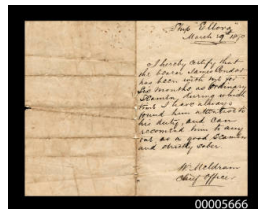 Ship Ellora
March 29th 18
I hereby certify that
the bearer James
has been with me for
six months, as Ordinary
Seaman, during which
time I have always
found him attentive to
his duty, and can
recomend him to any
one as a good Seaman
and strictly sober
W. Meldrum
Chief Officer
00005666